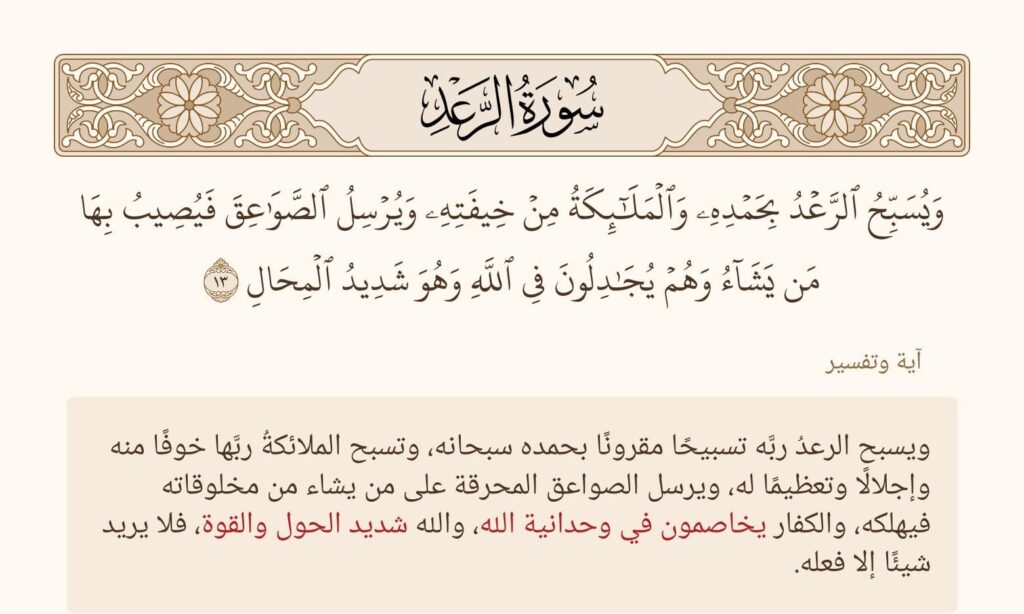 سُورَةُ الرَّعْدِ
وَيُسَبِّحُ ٱلرَّعۡدُ بِحَمۡدِهِۦ وَٱلۡمَلَـٰٓئِكَةُ مِنۡ خِيفَتِهِۦ وَيُرۡسِلُ ٱلصَّوَٰعِقَ فَيُصِيبُ بِهَا
مَن يَشَآءُ وَهُمۡ يُجَـٰدِلُونَ فِي ٱللَّهِ وَهُوَ شَدِيدُ ٱلۡمِحَالِ ١٣
آية وتفسير
ويسبح الرعدُ ربَّه تسبيحًا مقرونًا بحمده سبحانه، وتسبح الملائكةُ ربَّها خوفًا منه
وإجلالًا وتعظيمًا له، ويرسل الصواعق المحرقة على من يشاء من مخلوقاته
فيهلكه، والكفار يخاصمون في وحدانية الله، والله شديد الحول والقوة، فلا يريد
شيئًا إلا فعله.